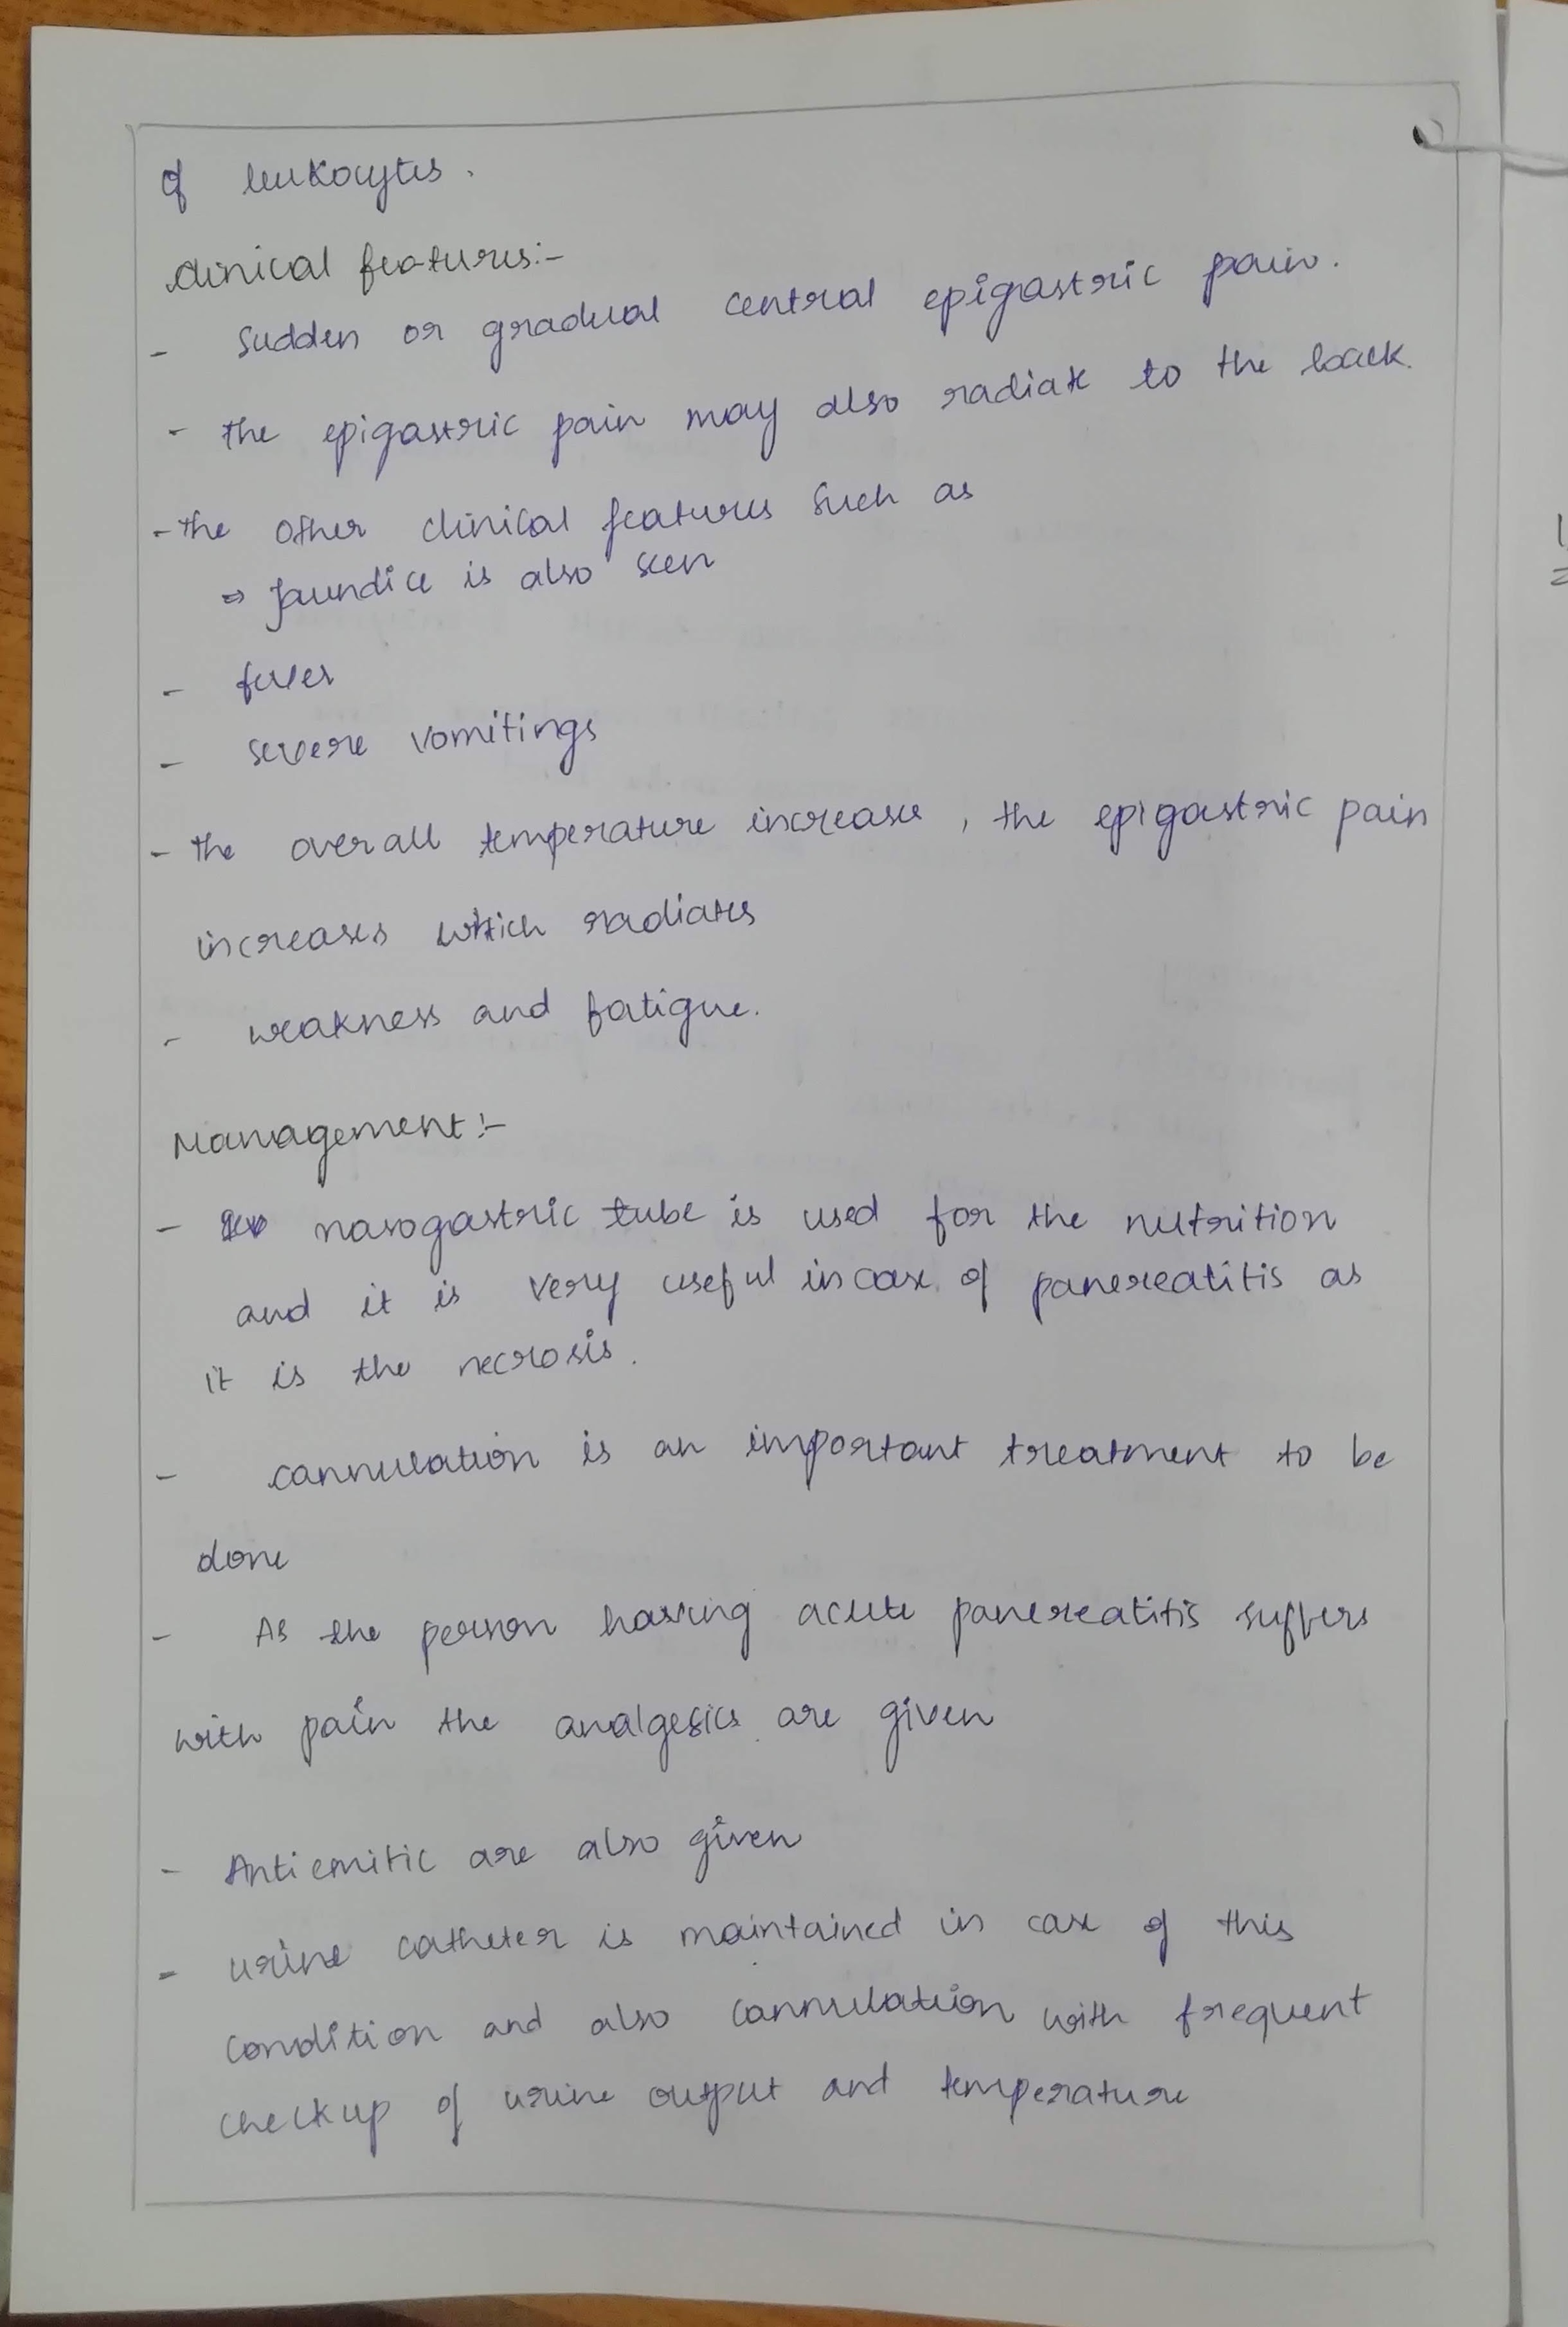 of leukocytes.
clinical features:-
- Sudden or gradual central epigastric pain.
- the epigastric pain may also radiate to the back.
- the other clinical features such as
⇒ Jaundice is also seen
- fever
- severe vomitings
- the overall temperature increases, the epigastric pain
increases which radiates
- weakness and fatigue.
Management:-
- nasogastric tube is used for the nutrition
and it is very useful incase of pancreatitis as
it is the necrosis.
- cannulation is an important treatment to be
done
- As the person having acute pancreatitis suffers
with pain the analgesics are given
- Antiemitic are also given
- urine catheter is maintained in case of this
condition and also cannulation with frequent
checkup of urine output and temperature